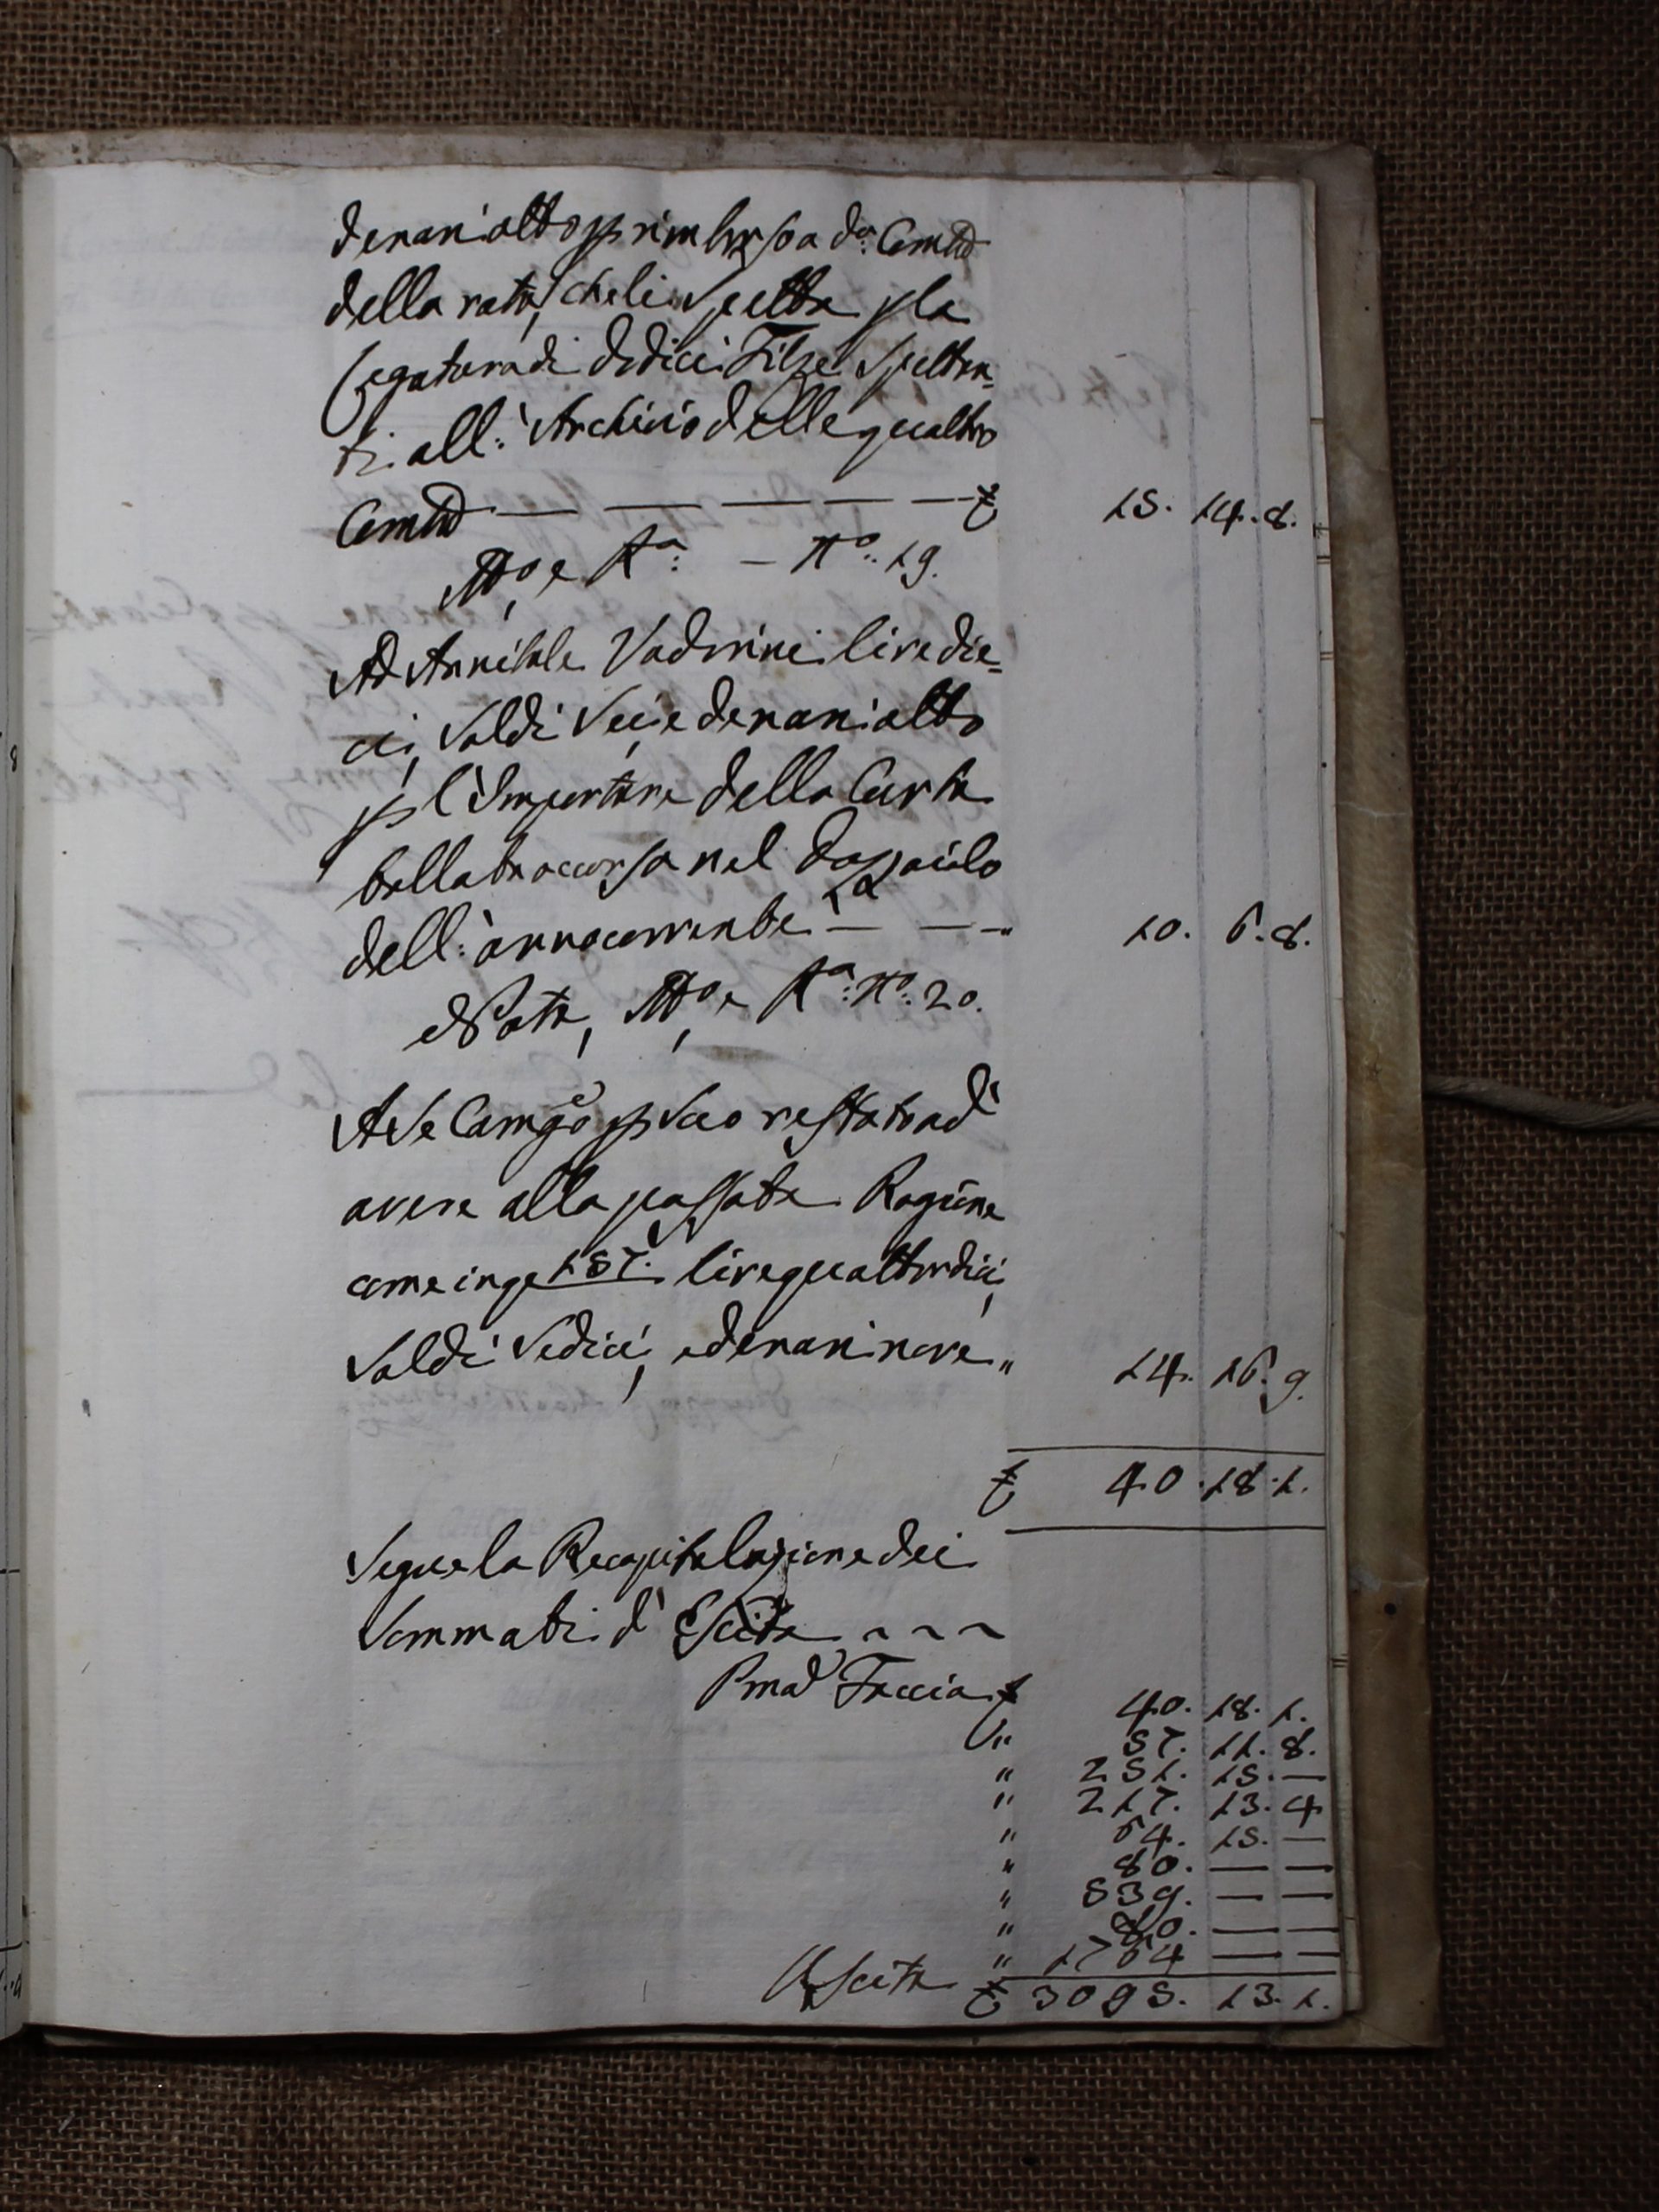 denari otto p rimborso a da: Comtà
della rata, che li Spetta p la
legatura di dodici Filze Spettan=
ti all: Archivio delle quattro
Comtà — — — — — £ 15. 14. 8.
Mto, e Ra: — No: 19.
Ad Annibale Vadrini lire die=
ci, Soldi Sei, e denari otto
p l'Importare della Carta
bollata occorsa nel dazzaiolo
dell: anno corrente — — " 10. 6. 8.
Nota, Mto, e Ra: No: 20.
A Se Camgo p Suo restato ad
avere alla passata Ragione
come in qe 157. lire quattordici,
Soldi Sedici, e denari nove " 14. 16. 9.
£ 40. 18. 1.
Segue la Recapitolazione dei
Sommati d' Escita ~ ~ ~
Pma Faccia £ 40. 18. 1.
" 57. 11. 8.
" 251. 15. —
" 217. 13. 4
" 64. 15. —
" 80. — —
" 539. — —
" 80. — —
" 1764 — —
Uscita £ 3095. 13. 1.